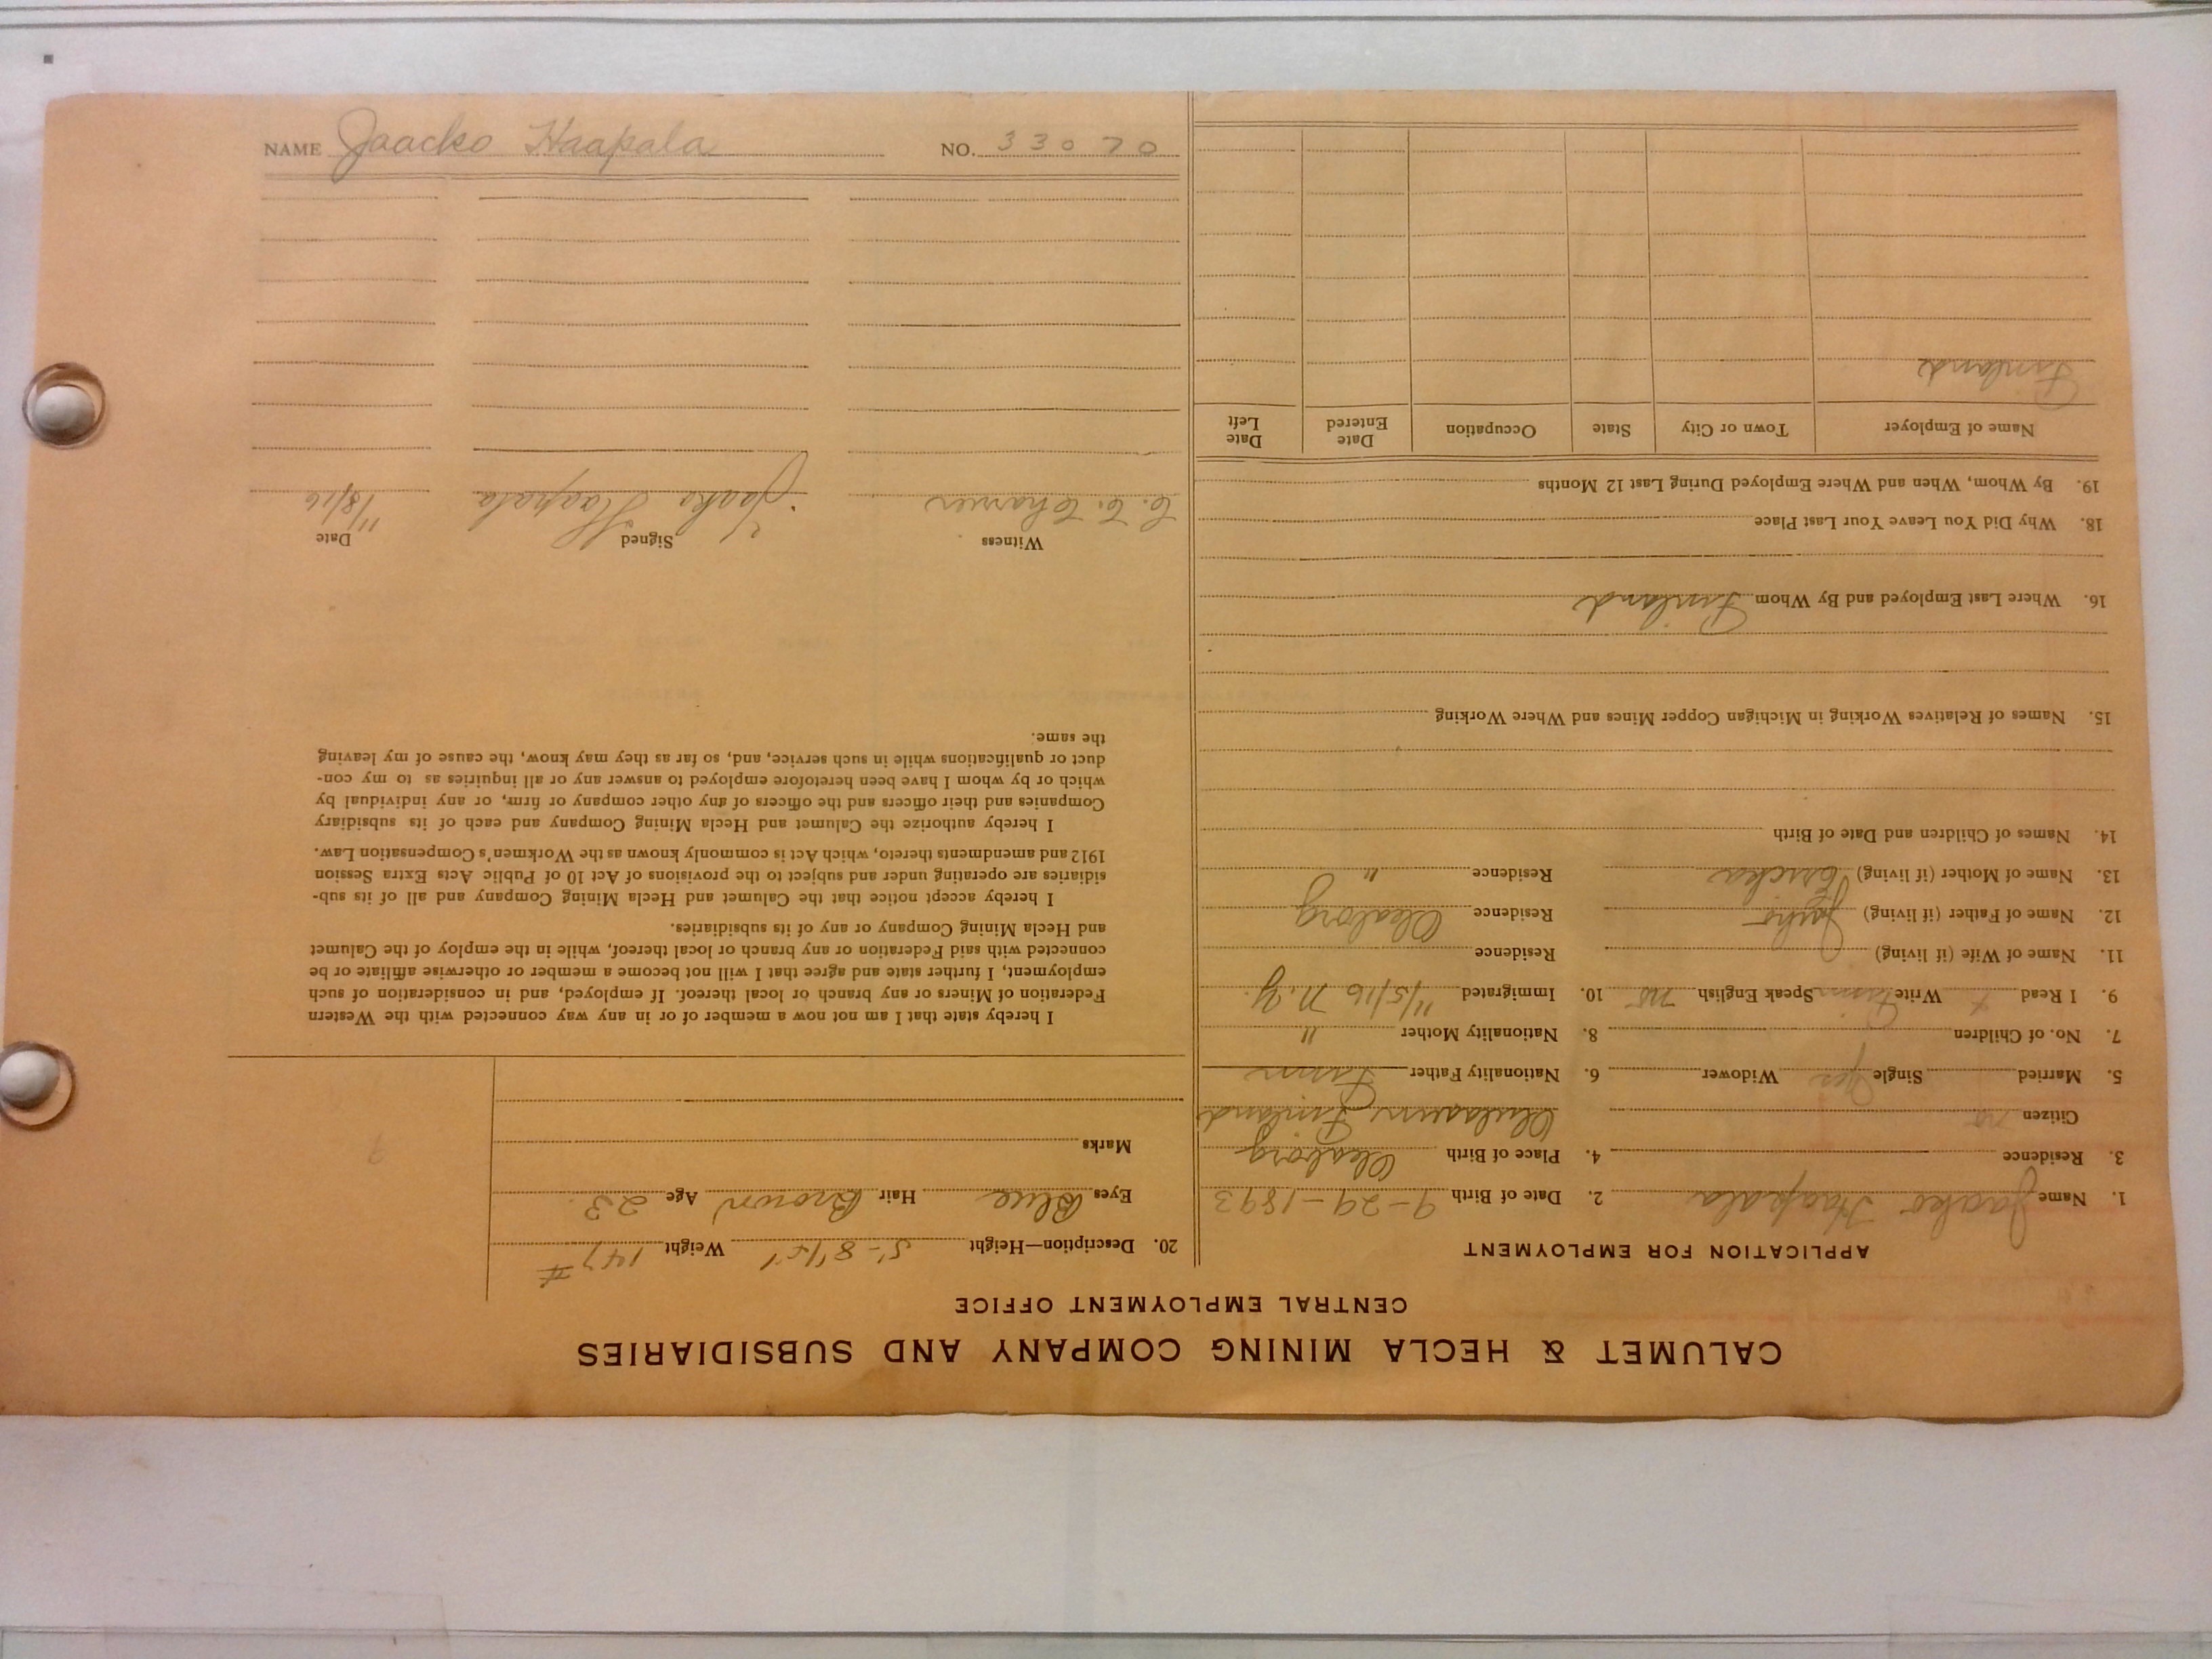 NAME Jaacko Haapala NO. 33070
CALUMET & HECLA MINING COMPANY AND SUBSIDIARIES
CENTRAL EMPLOYMENT OFFICE
APPLICATION FOR EMPLOYMENT
1. Name Jaako Haapala 2. Date of Birth 9-29-1893
3. Residence 4. Place of Birth Uleaborg
Citizen no Finland
5. Married Single Yes Widower 6. Nationality Father Finn
7. No. of Children 8. Nationality Mother "
9. I Read Write Finn Speak English no 10. Immigrated 11/5/16 N.Y.
11. Name of Wife (if living) Residence
12. Name of Father (if living) Residence Uleaborg
13. Name of Mother (if living) Residence "
14. Names of Children and Date of Birth
15. Names of Relatives Working in Michigan Copper Mines and Where Working
16. Where Last Employed and By Whom Finland
18. Why Did You Leave Your Last Place
19. By Whom, When and Where Employed During Last 12 Months
Name of Employer Town or City State Occupation Date Entered Date Left
Finland
20. Description—Height Weight 147 #
Eyes Blue Hair Brown Age 23
Marks
I hereby state that I am not now a member of or in any way connected with the Western
Federation of Miners or any branch or local thereof. If employed, and in consideration of such
employment, I further state and agree that I will not become a member or otherwise affiliate or be
connected with said Federation or any branch or local thereof, while in the employ of the Calumet
and Hecla Mining Company or any of its subsidiaries.
I hereby accept notice that the Calumet and Hecla Mining Company and all of its sub-
sidiaries are operating under and subject to the provisions of Act 10 of Public Acts Extra Session
1912 and amendments thereto, which Act is commonly known as the Workmen's Compensation Law.
I hereby authorize the Calumet and Hecla Mining Company and each of its subsidiary
Companies and their officers and the officers of any other company or firm, or any individual by
which or by whom I have been heretofore employed to answer any or all inquiries as to my con-
duct or qualifications while in such service, and, so far as they may know, the cause of my leaving
the same.
Witness Signed Date
C. C. Jaako Haapala 11/8/16